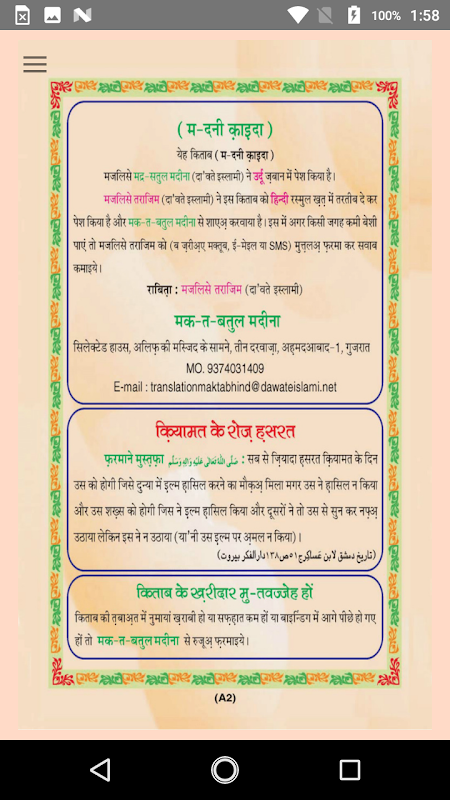 100% 1:58
( म-दनी क़ाइदा )
येह किताब ( म-दनी क़ाइदा )
मजलिसे मद्र-सतुल मदीना (दा'वते इस्लामी) ने उर्दू ज़बान में पेश किया है।
मजलिसे तराजिम (दा'वते इस्लामी) ने इस किताब को हिन्दी रस्मुल ख़त़ में तरतीब दे कर
पेश किया है और मक-त-बतुल मदीना से शाएअ़ करवाया है। इस में अगर किसी जगह कमी बेशी
पाएं तो मजलिसे तराजिम को (ब ज़रीअ़ए मक्तूब, ई-मेइल या SMS) मुत़्त़लअ़ फ़रमा कर सवाब
कमाइये।
राबित़ा : मजलिसे तराजिम (दा'वते इस्लामी)
मक-त-बतुल मदीना
सिलेक्टेड हाउस, अलिफ़ की मस्जिद के सामने, तीन दरवाज़ा, अह़मदआबाद-1, गुजरात
MO. 9374031409
E-mail : translationmaktabhind@dawateislami.net
क़ियामत के रोज़ ह़सरत
फ़रमाने मुस्त़फ़ा صَلَّى اللهُ تَعَالٰى عَلَيْهِ وَاٰلِهٖ وَسَلَّم : सब से ज़ियादा ह़सरत क़ियामत के दिन
उस को होगी जिसे दुन्या में इल्म ह़ासिल करने का मौक़अ़ मिला मगर उस ने ह़ासिल न किया
और उस शख़्स को होगी जिस ने इल्म ह़ासिल किया और दूसरों ने तो उस से सुन कर नफ़्अ़
उठाया लेकिन इस ने न उठाया (या'नी उस इल्म पर अ़मल न किया)।
(تاريخ دمشق لابن عساكر ج٥١ص١٣٨دارالفكر بيروت)
किताब के ख़रीदार मु-तवज्जेह हों
किताब की त़बाअ़त में नुमायां ख़राबी हो या सफ़ह़ात कम हों या बाइन्डिंग में आगे पीछे हो गए
हों तो मक-त-बतुल मदीना से रुजूअ़ फ़रमाइये।
(A2)